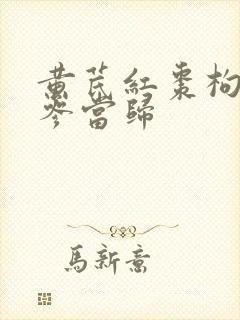 黄芪紅棗枸
參當歸
馬新意